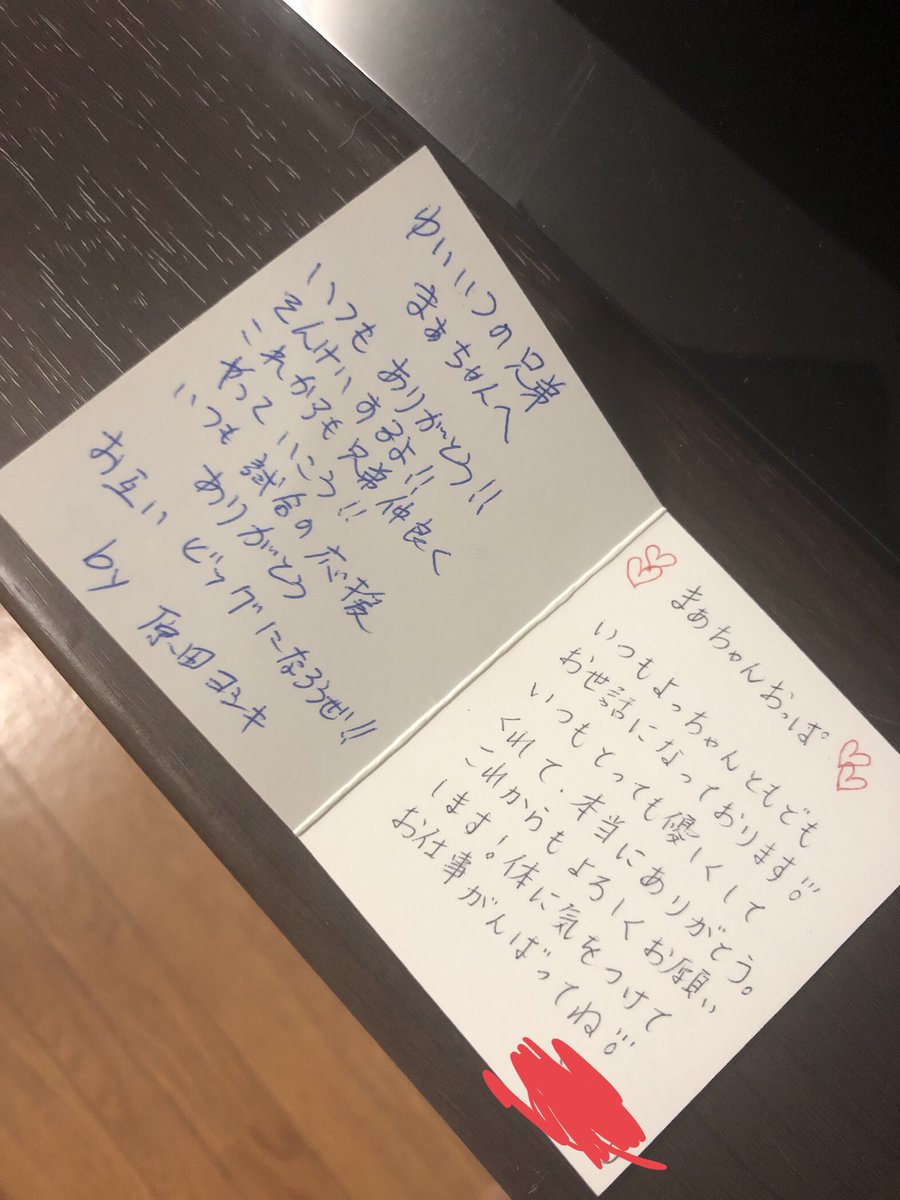 ゆいいつの兄弟
まあちゃんへ
いつもありがとう!!
そんけいするよ!!
これからも兄弟仲良く
やっていこう!!
いつも試合の応援
ありがとう
お互いビッグになろうぜ!!
by 原田ヨシキ
まあちゃんおっぱ。
いつもよっちゃんともども
お世話になっております!!
いつもとっても優しくして
くれて、本当にありがとう。
これからもよろしくお願い
します!体に気をつけて
お仕事がんばってね!!